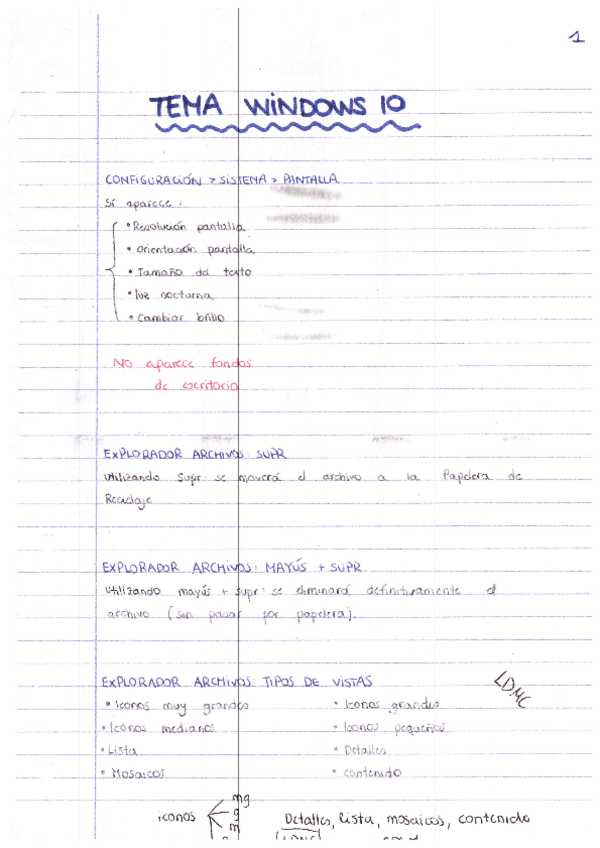 1
TEMA WINDOWS 10
CONFIGURACIÓN > SISTEMA > PANTALLA
Sí aparece:
• Resolución pantalla
• Orientación pantalla
• Tamaño del texto
• luz nocturna
• Cambiar brillo
No aparece fondos
de escritorio
EXPLORADOR ARCHIVOS: SUPR
Utilizando Supr se moverá el archivo a la Papelera de
Reciclaje
EXPLORADOR ARCHIVOS: MAYÚS + SUPR
Utilizando mayús + supr: se eliminará definitivamente el
archivo (sin pasar por papelera).
EXPLORADOR ARCHIVOS: TIPOS DE VISTAS
LDMC
• Iconos muy grandes • Iconos grandes
• Iconos medianos • Iconos pequeños
• Lista • Detalles
• Mosaicos • Contenido
mg
iconos g Detalles, lista, mosaicos, contenido
m